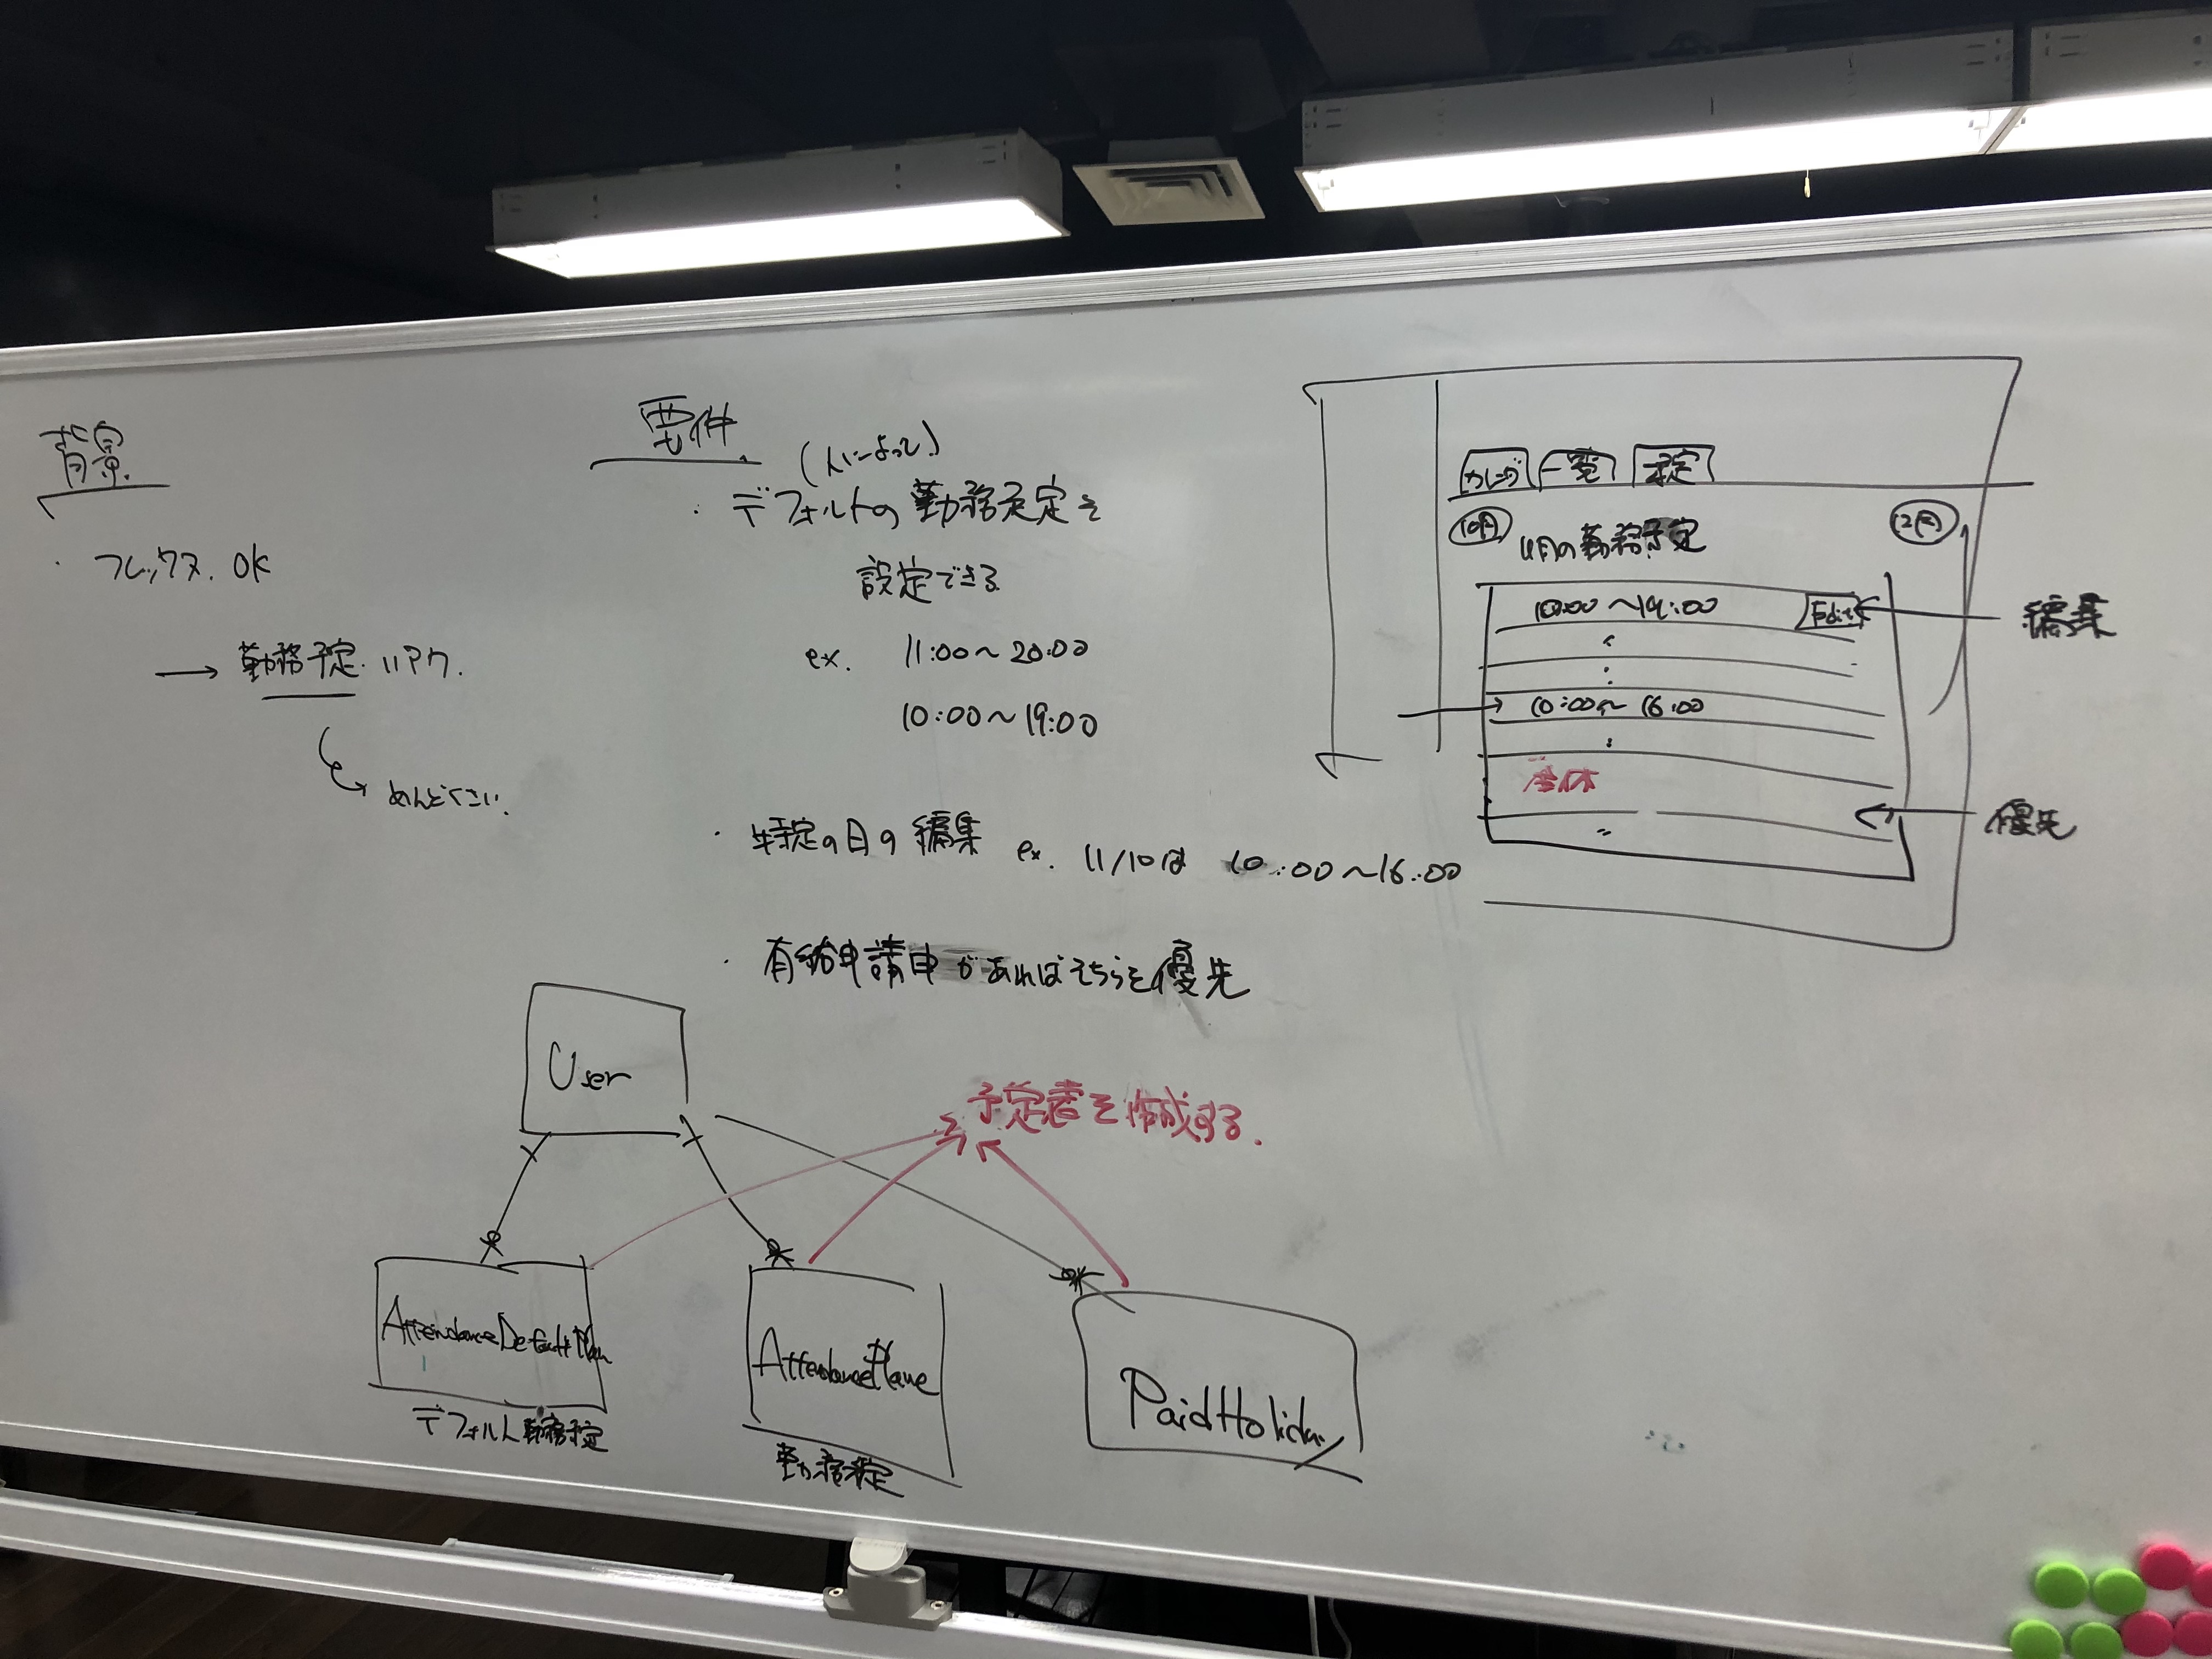 背景
・フレックス. OK
→ 勤務予定
めんどくさい.
要件
(人によって)
・デフォルトの勤務予定を
設定できる
ex. 11:00〜20:00
10:00〜19:00
・特定の日の編集 ex. 11/10は 10:00〜16:00
・有給申請中があればそちらを優先
一覧 予定
10月 11月の勤務予定 12月
10:00〜19:00 Edit
編集
10:00〜16:00
優先
User
予定者を作成する.
AttendanceDefaultPlan
デフォルト勤務予定
AttendancePlane
勤務予定
PaidHoliday